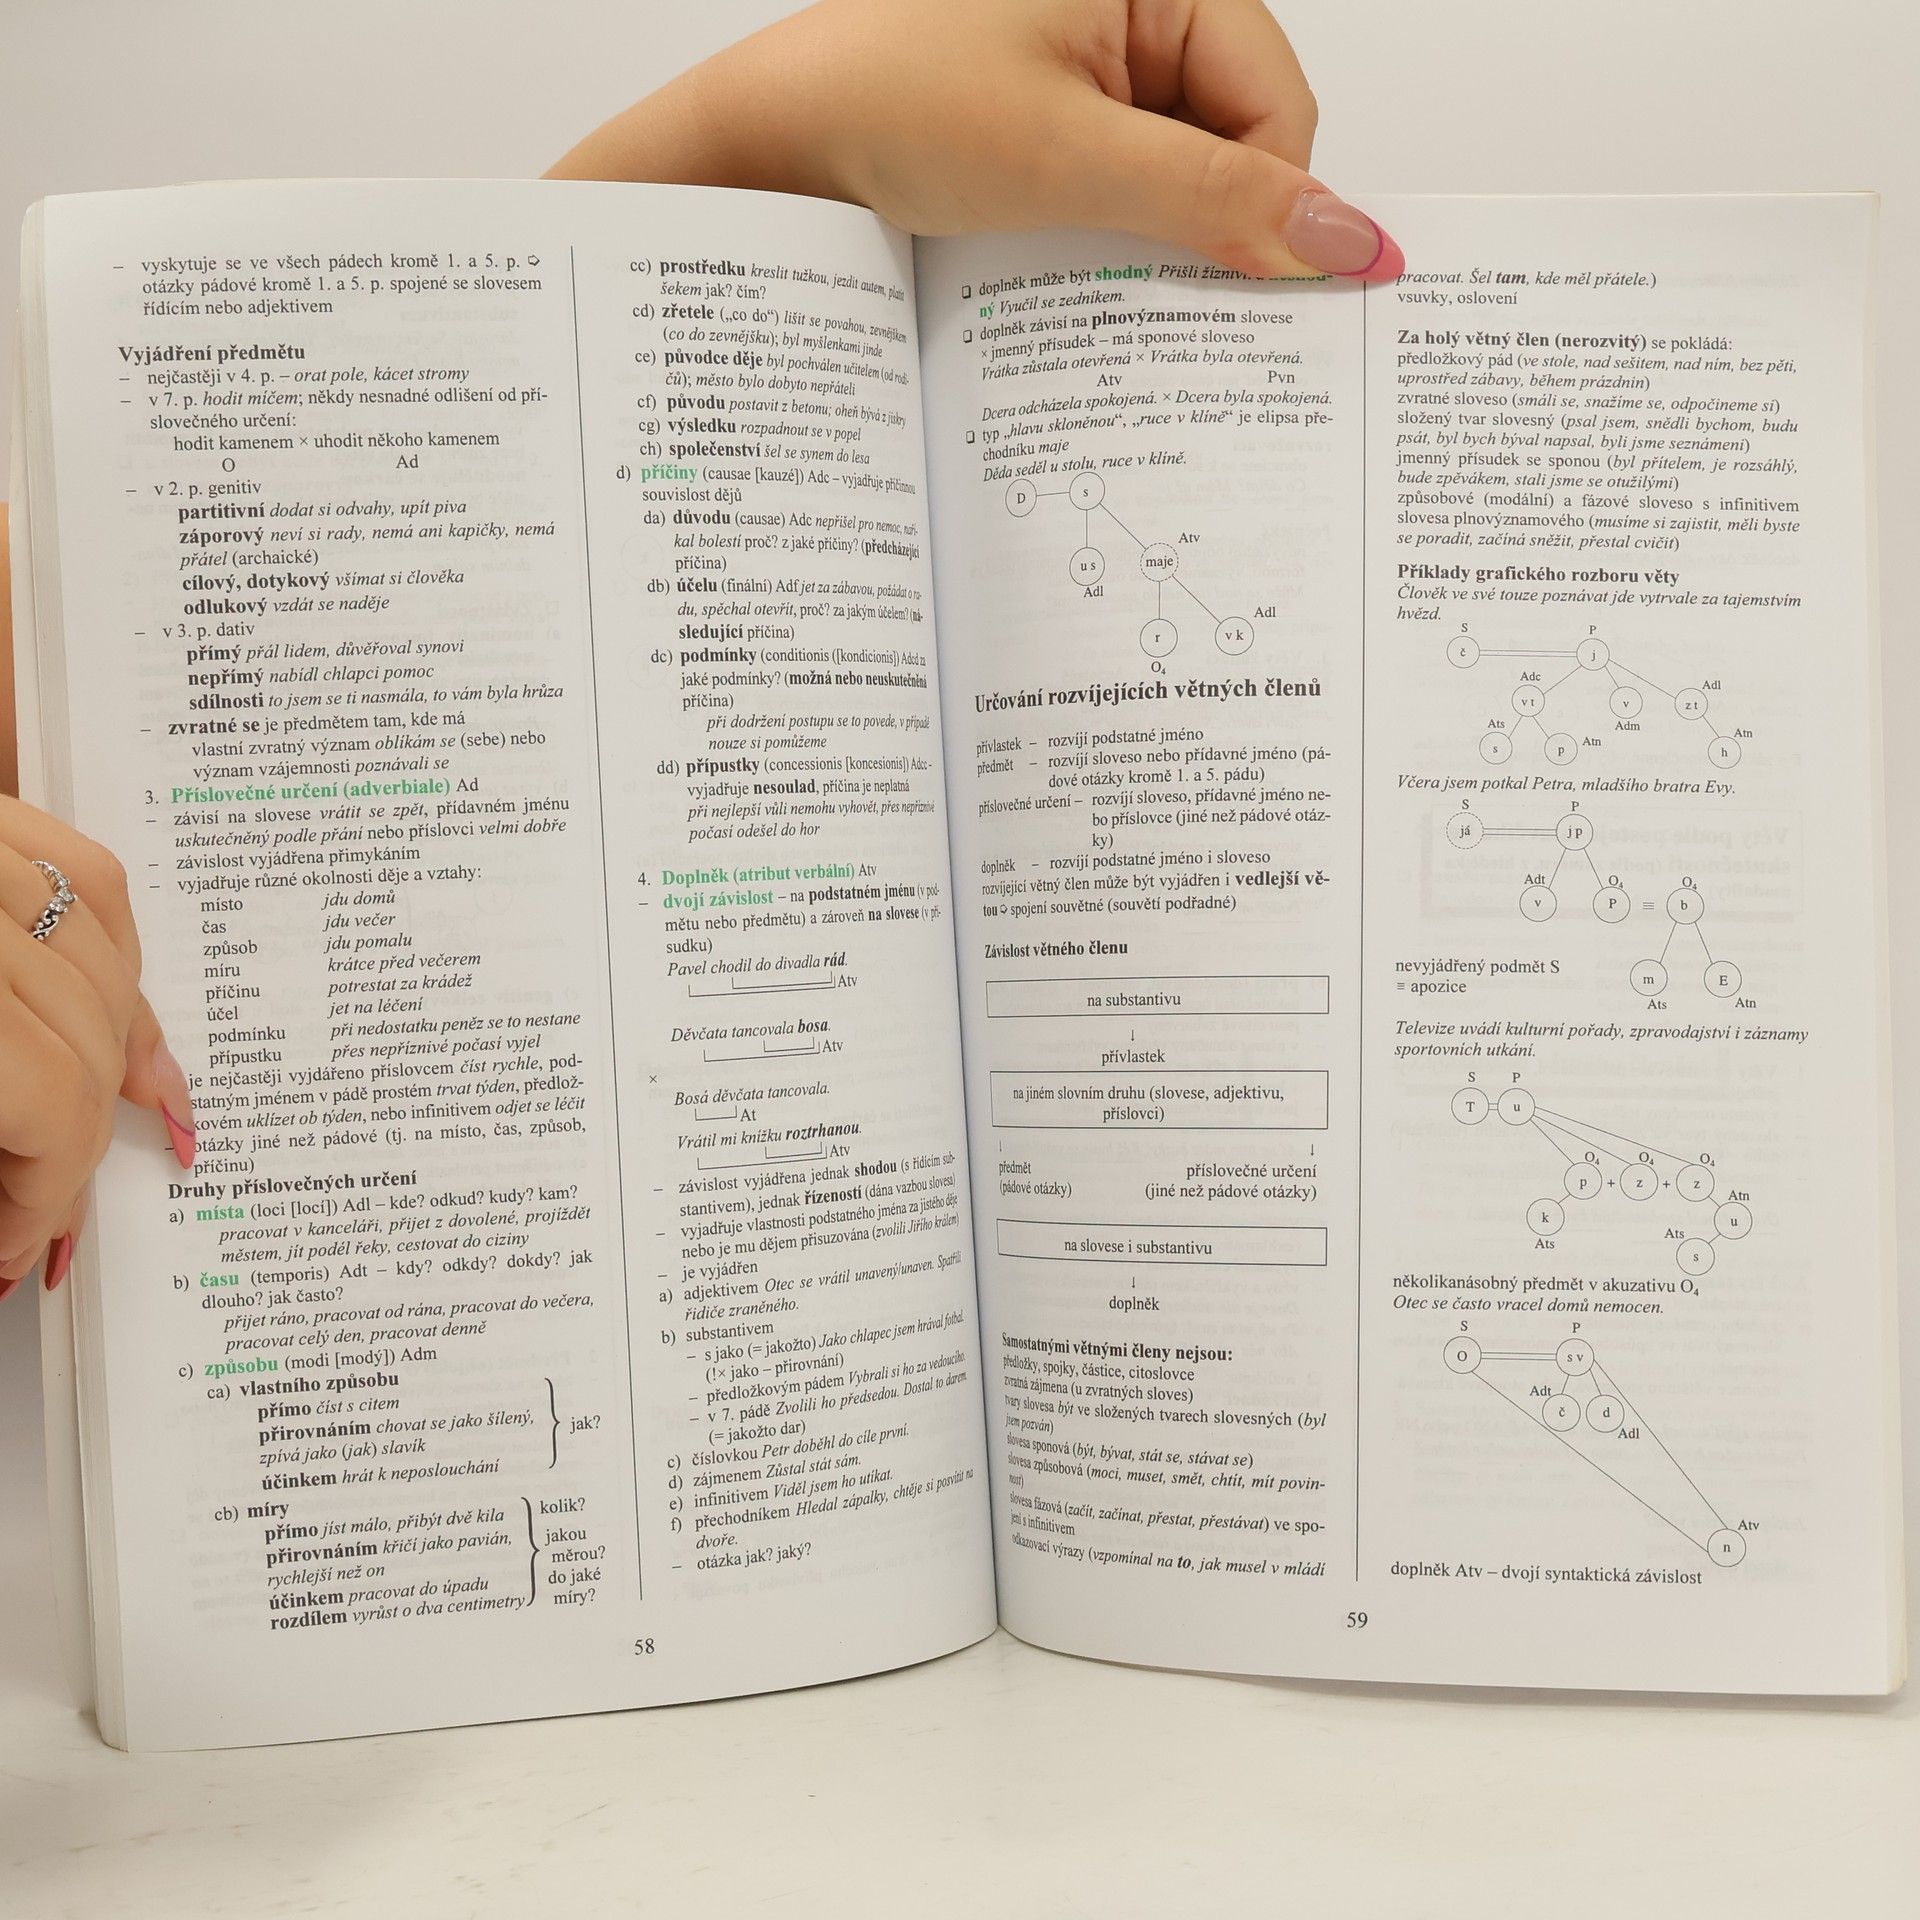 – vyskytuje se ve všech pádech kromě 1. a 5. p. ➩
otázky pádové kromě 1. a 5. p. spojené se slovesem
řídícím nebo adjektivem
Vyjádření předmětu
– nejčastěji v 4. p. – orat pole, kácet stromy
– v 7. p. hodit míčem; někdy nesnadné odlišení od pří-
slovečného určení:
hodit kamenem × uhodit někoho kamenem
O Ad
– v 2. p. genitiv
partitivní dodat si odvahy, upít piva
záporový neví si rady, nemá ani kapičky, nemá
přátel (archaické)
cílový, dotykový všímat si člověka
odlukový vzdát se naděje
– v 3. p. dativ
přímý přál lidem, důvěřoval synovi
nepřímý nabídl chlapci pomoc
sdílnosti to jsem se ti nasmála, to vám byla hrůza
– zvratné se je předmětem tam, kde má
vlastní zvratný význam oblíkám se (sebe) nebo
význam vzájemnosti poznávali se
3. Příslovečné určení (adverbiale) Ad
– závisí na slovese vrátit se zpět, přídavném jménu
uskutečněný podle přání nebo příslovci velmi dobře
– závislost vyjádřena přimykáním
– vyjadřuje různé okolnosti děje a vztahy:
místo jdu domů
čas jdu večer
způsob jdu pomalu
míru krátce před večerem
příčinu potrestat za krádež
účel jet na léčení
podmínku při nedostatku peněz se to nestane
přípustku přes nepříznivé počasí vyjel
je nejčastěji vyjdářeno příslovcem číst rychle, pod-
statným jménem v pádě prostém trvat týden, předlož-
kovém uklízet ob týden, nebo infinitivem odjet se léčit
– otázky jiné než pádové (tj. na místo, čas, způsob,
příčinu)
Druhy příslovečných určení
a) místa (loci [locí]) Adl – kde? odkud? kudy? kam?
pracovat v kanceláři, přijet z dovolené, projíždět
městem, jít podél řeky, cestovat do ciziny
b) času (temporis) Adt – kdy? odkdy? dokdy? jak
dlouho? jak často?
přijet ráno, pracovat od rána, pracovat do večera,
pracovat celý den, pracovat denně
c) způsobu (modi [modý]) Adm
ca) vlastního způsobu
přímo číst s citem
přirovnáním chovat se jako šílený,
zpívá jako (jak) slavík
účinkem hrát k neposlouchání
jak?
cb) míry
přímo jíst málo, přibýt dvě kila
přirovnáním křičí jako pavián,
rychlejší než on
účinkem pracovat do úpadu
rozdílem vyrůst o dva centimetry
kolik?
jakou
měrou?
do jaké
míry?
cc) prostředku kreslit tužkou, jezdit autem, platit
šekem jak? čím?
cd) zřetele („co do“) lišit se povahou, zevnějškem
(co do zevnějšku); byl myšlenkami jinde
ce) původce děje byl pochválen učitelem (od rodi-
čů); město bylo dobyto nepřáteli
cf) původu postavit z betonu; oheň bývá z jiskry
cg) výsledku rozpadnout se v popel
ch) společenství šel se synem do lesa
d) příčiny (causae [kauzé]) Adc – vyjadřuje příčinnou
souvislost dějů
da) důvodu (causae) Adc nepřišel pro nemoc, naří-
kal bolestí proč? z jaké příčiny? (předcházející
příčina)
db) účelu (finální) Adf jet za zábavou, požádat o ra-
du, spěchal otevřít, proč? za jakým účelem? (ná-
sledující příčina)
dc) podmínky (conditionis ([kondicionis]) Adcd za
jaké podmínky? (možná nebo neuskutečněná
příčina)
při dodržení postupu se to povede, v případě
nouze si pomůžeme
dd) přípustky (concessionis [koncesionis]) Adcc -
vyjadřuje nesoulad, příčina je neplatná
při nejlepší vůli nemohu vyhovět, přes nepříznivé
počasí odešel do hor
4. Doplněk (atribut verbální) Atv
– dvojí závislost – na podstatném jménu (v pod-
mětu nebo předmětu) a zároveň na slovese (v pří-
sudku)
Pavel chodil do divadla rád.
Atv
Děvčata tancovala bosa.
Atv
×
Bosá děvčata tancovala.
At
Vrátil mi knížku roztrhanou.
Atv
– závislost vyjádřena jednak shodou (s řídicím sub-
stantivem), jednak řízeností (dána vazbou slovesa)
– vyjadřuje vlastnosti podstatného jména za jistého děje
nebo je mu dějem přisuzována (zvolili Jiřího králem)
– je vyjádřen
a) adjektivem Otec se vrátil unavený/unaven. Spatřili
řidiče zraněného.
b) substantivem
– s jako (= jakožto) Jako chlapec jsem hrával fotbal.
(!× jako – přirovnání)
– předložkovým pádem Vybrali si ho za vedoucího.
– v 7. pádě Zvolili ho předsedou. Dostal to darem.
(= jakožto dar)
c) číslovkou Petr doběhl do cíle první.
d) zájmenem Zůstal stát sám.
e) infinitivem Viděl jsem ho utíkat.
f) přechodníkem Hledal zápalky, chtěje si posvítit na
dvoře.
– otázka jak? jaký?
58
❑ doplněk může být shodný Přišli žízniví.
ný Vyučil se zedníkem.
❑ doplněk závisí na plnovýznamovém slovese
× jmenný přísudek – má sponové sloveso
Vrátka zůstala otevřená × Vrátka byla otevřená.
Atv Pvn
Dcera odcházela spokojená. × Dcera byla spokojená.
❑ typ „hlavu skloněnou“, „ruce v klíně“ je elipsa pře-
chodníku maje
Děda seděl u stolu, ruce v klíně.
D s
Atv
u s maje
Adl
Adl
r v k
O4
Určování rozvíjejících větných členů
přívlastek – rozvíjí podstatné jméno
předmět – rozvíjí sloveso nebo přídavné jméno (pá-
dové otázky kromě 1. a 5. pádu)
příslovečné určení – rozvíjí sloveso, přídavné jméno ne-
bo příslovce (jiné než pádové otáz-
ky)
doplněk – rozvíjí podstatné jméno i sloveso
rozvíjející větný člen může být vyjádřen i vedlejší vě-
tou ➩ spojení souvětné (souvětí podřadné)
Závislost větného členu
na substantivu
↓
přívlastek
na jiném slovním druhu (slovese, adjektivu,
příslovci)
↓ ↓
předmět příslovečné určení
(pádové otázky) (jiné než pádové otázky)
na slovese i substantivu
↓
doplněk
Samostatnými větnými členy nejsou:
předložky, spojky, částice, citoslovce
zvratná zájmena (u zvratných sloves)
tvary slovesa být ve složených tvarech slovesných (byl
jsem pozván)
slovesa sponová (být, bývat, stát se, stávat se)
slovesa způsobová (moci, muset, smět, chtít, mít povin-
nost)
slovesa fázová (začít, začínat, přestat, přestávat) ve spo-
jení s infinitivem
odkazovací výrazy (vzpomínal na to, jak musel v mládí
pracovat. Šel tam, kde měl přátele.)
vsuvky, oslovení
Za holý větný člen (nerozvitý) se pokládá:
předložkový pád (ve stole, nad sešitem, nad ním, bez pěti,
uprostřed zábavy, během prázdnin)
zvratné sloveso (smáli se, snažíme se, odpočineme si)
složený tvar slovesný (psal jsem, snědli bychom, budu
psát, byl bych býval napsal, byli jsme seznámeni)
jmenný přísudek se sponou (byl přítelem, je rozsáhlý,
bude zpěvákem, stali jsme se otužilými)
způsobové (modální) a fázové sloveso s infinitivem
slovesa plnovýznamového (musíme si zajistit, měli byste
se poradit, začíná sněžit, přestal cvičit)
Příklady grafického rozboru věty
Člověk ve své touze poznávat jde vytrvale za tajemstvím
hvězd.
S P
č j
Adc Adl
v t v z t
Ats Adm Atn
s p Atn h
Včera jsem potkal Petra, mladšího bratra Evy.
S P
já j p
Adt O4 O4
v P ≡ b
nevyjádřený podmět S
≡ apozice
m E
Ats Atn
Televize uvádí kulturní pořady, zpravodajství i záznamy
sportovních utkání.
S P
T u
O4 O4 O4
p + z + z
Atn
k u
Ats Ats
s
několikanásobný předmět v akuzativu O4
Otec se často vracel domů nemocen.
S P
O s v
Adt
č d
Adl
Atv
n
doplněk Atv – dvojí syntaktická závislost
59